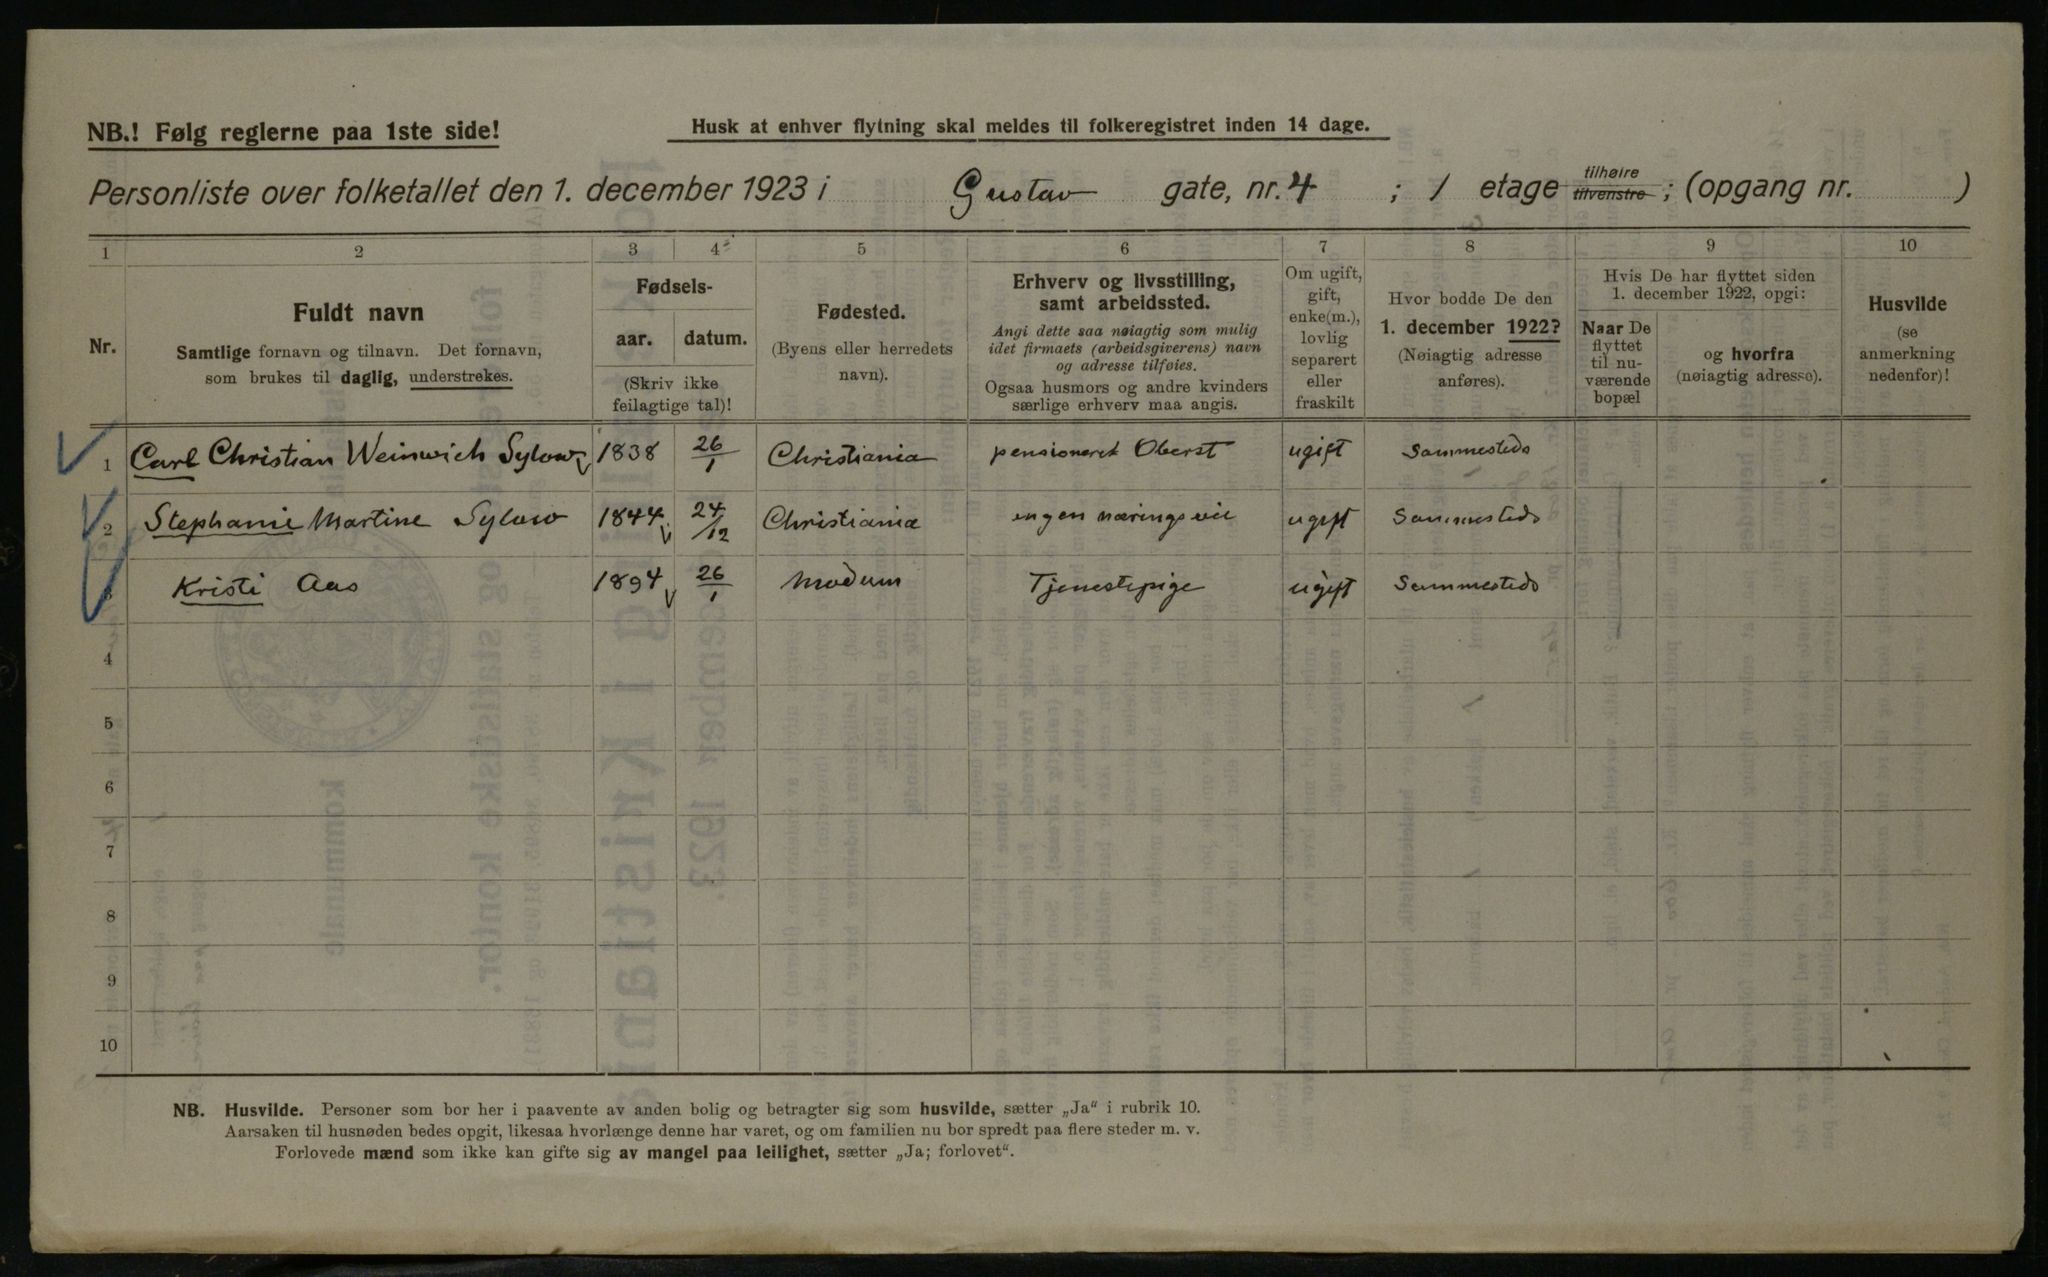 NB.! Følg reglerne paa 1ste side!
Husk at enhver flytning skal meldes til folkeregistret inden 14 dage.
Personliste over folketallet den 1. december 1923 i Gustav gate, nr. 4 ; 1 etage tilhøire tilvenstre ; (opgang nr. )
1 2 3 4 5 6 7 8 9 10
Nr.
Fuldt navn
Samtlige fornavn og tilnavn. Det fornavn,
som brukes til daglig, understrekes.
Fødsels-
aar. datum.
(Skriv ikke
feilagtige tal)!
Fødested.
(Byens eller herredets
navn).
Erhverv og livsstilling,
samt arbeidssted.
Angi dette saa nøiagtig som mulig
idet firmaets (arbeidsgiverens) navn
og adresse tilføies.
Ogsaa husmors og andre kvinders
særlige erhverv maa angis.
Om ugift,
gift,
enke(m.),
lovlig
separert
eller
fraskilt
Hvor bodde De den
1. december 1922?
(Nøiagtig adresse
anføres).
Hvis De har flyttet siden
1. december 1922, opgi:
Naar De
flyttet
til nu-
værende
bopæl
og hvorfra
(nøiagtig adresse).
Husvilde
(se
anmerkning
nedenfor)!
1 Carl Christian Weinwich Sylow 1838 26/1 Christiania pensioneret Oberst ugift Sammesteds
2 Stephanie Martine Sylow 1844 24/12 Christiania ingen næringsvei ugift Sammesteds
3 Kristi Aas 1894 26/1 Modum Tjenestepige ugift Sammesteds
4
5
6
7
8
9
10
NB. Husvilde. Personer som bor her i paavente av anden bolig og betragter sig som husvilde, sætter „Ja“ i rubrik 10.
Aarsaken til husnøden bedes opgit, likesaa hvorlænge denne har varet, og om familien nu bor spredt paa flere steder m. v.
Forlovede mænd som ikke kan gifte sig av mangel paa leilighet, sætter „Ja; forlovet“.